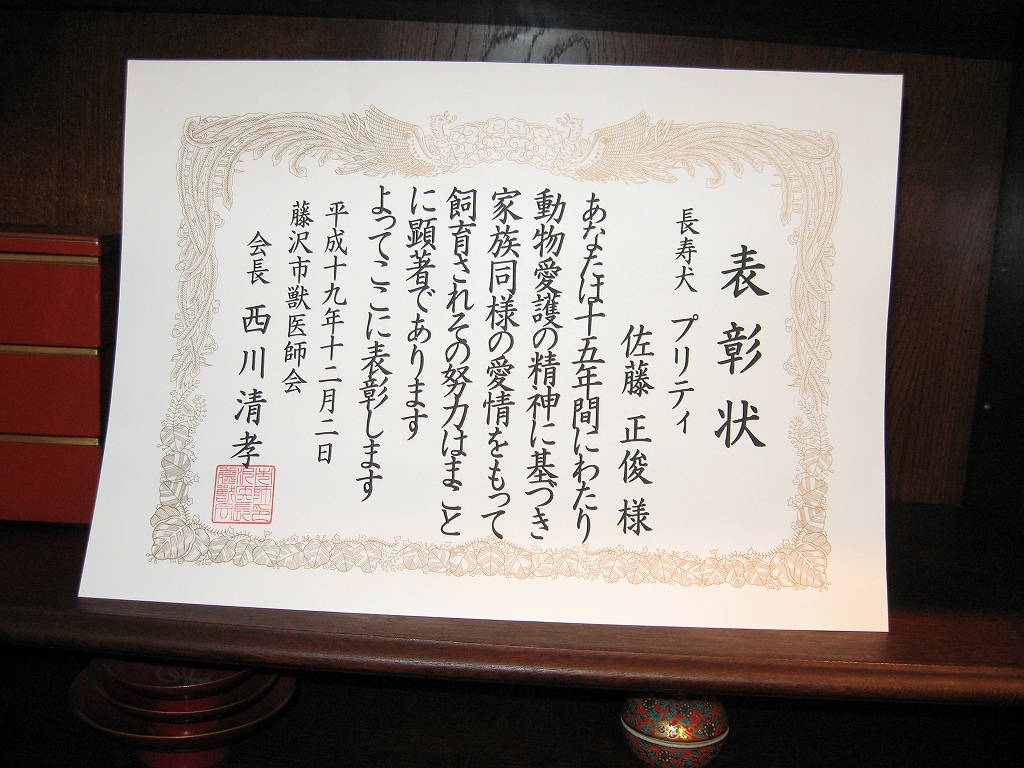 表彰状
長寿犬 プリティ
佐藤 正俊 様
あなたは十五年間にわたり
動物愛護の精神に基づき
家族同様の愛情をもって
飼育されその努力はまこと
に顕著であります
よってここに表彰します
平成十九年十二月二日
藤沢市獣医師会
会長 西川清孝